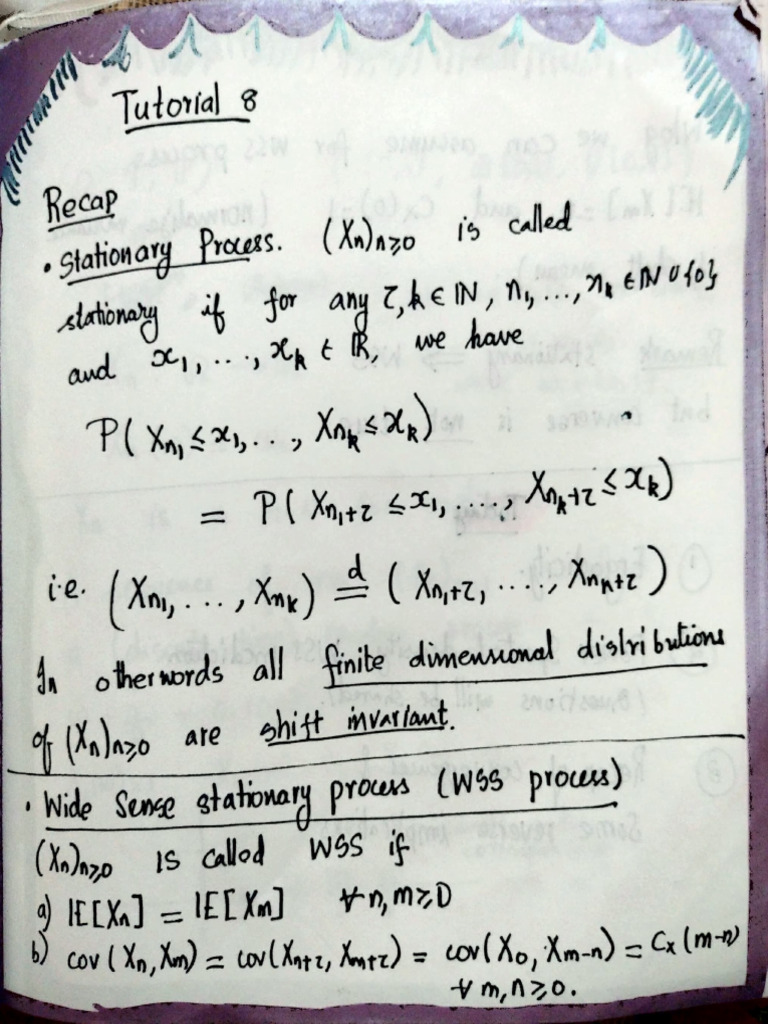 Tutorial 8
Recap
• Stationary Process. (Xn)n≥0 is called
stationary if for any τ, k ∈ ℕ, n1, ..., nk ∈ ℕ ∪ {0}
and x1, ..., xk ∈ ℝ, we have
P( Xn1 ≤ x1, ..., Xnk ≤ xk)
= P( Xn1+τ ≤ x1, ...., Xnk+τ ≤ xk)
i.e. (Xn1, ..., Xnk) d= ( Xn1+τ, ...., Xnk+τ )
In other words all finite dimensional distributions
of (Xn)n≥0 are shift invariant.
• Wide Sense stationary process (WSS process)
(Xn)n≥0 is called WSS if
a) IE[Xn] = IE[Xm] ∀ n, m ≥ 0
b) cov(Xn, Xm) = cov(Xn+τ, Xm+τ) = cov(X0, Xm-n) = Cx(m-n)
∀ m, n ≥ 0.